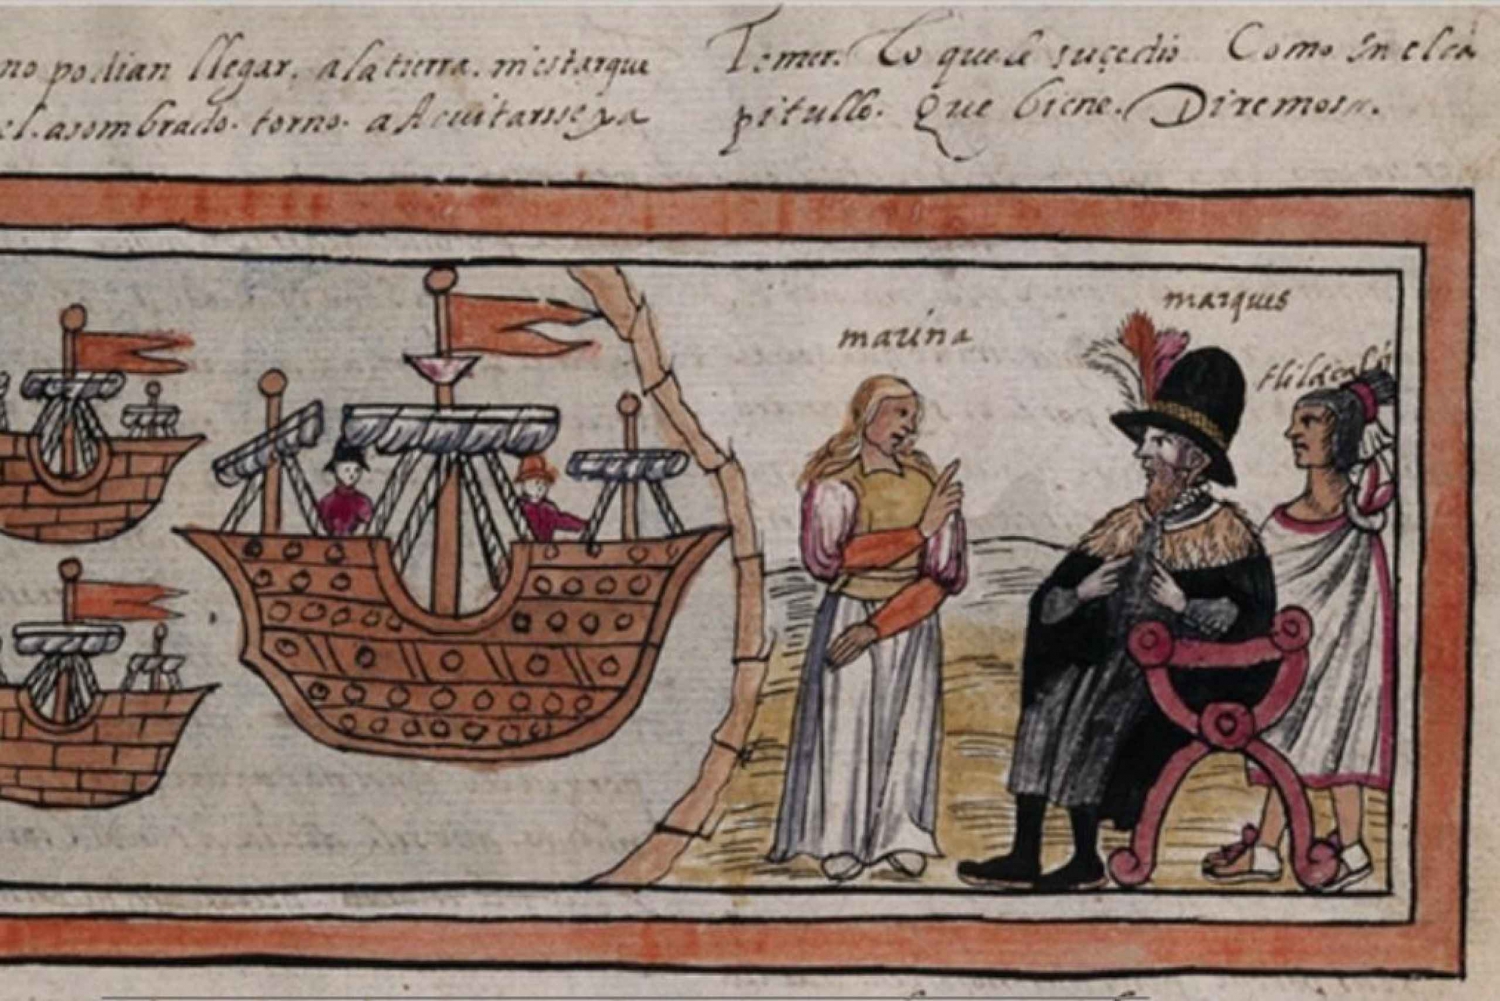 no podian llegar. a la tierra. mas tarque
el. asombrado. torno. a
Temer. Lo que le sucedio. Como en el ca
pitullo. Que biene. Diremos.
marina
marques